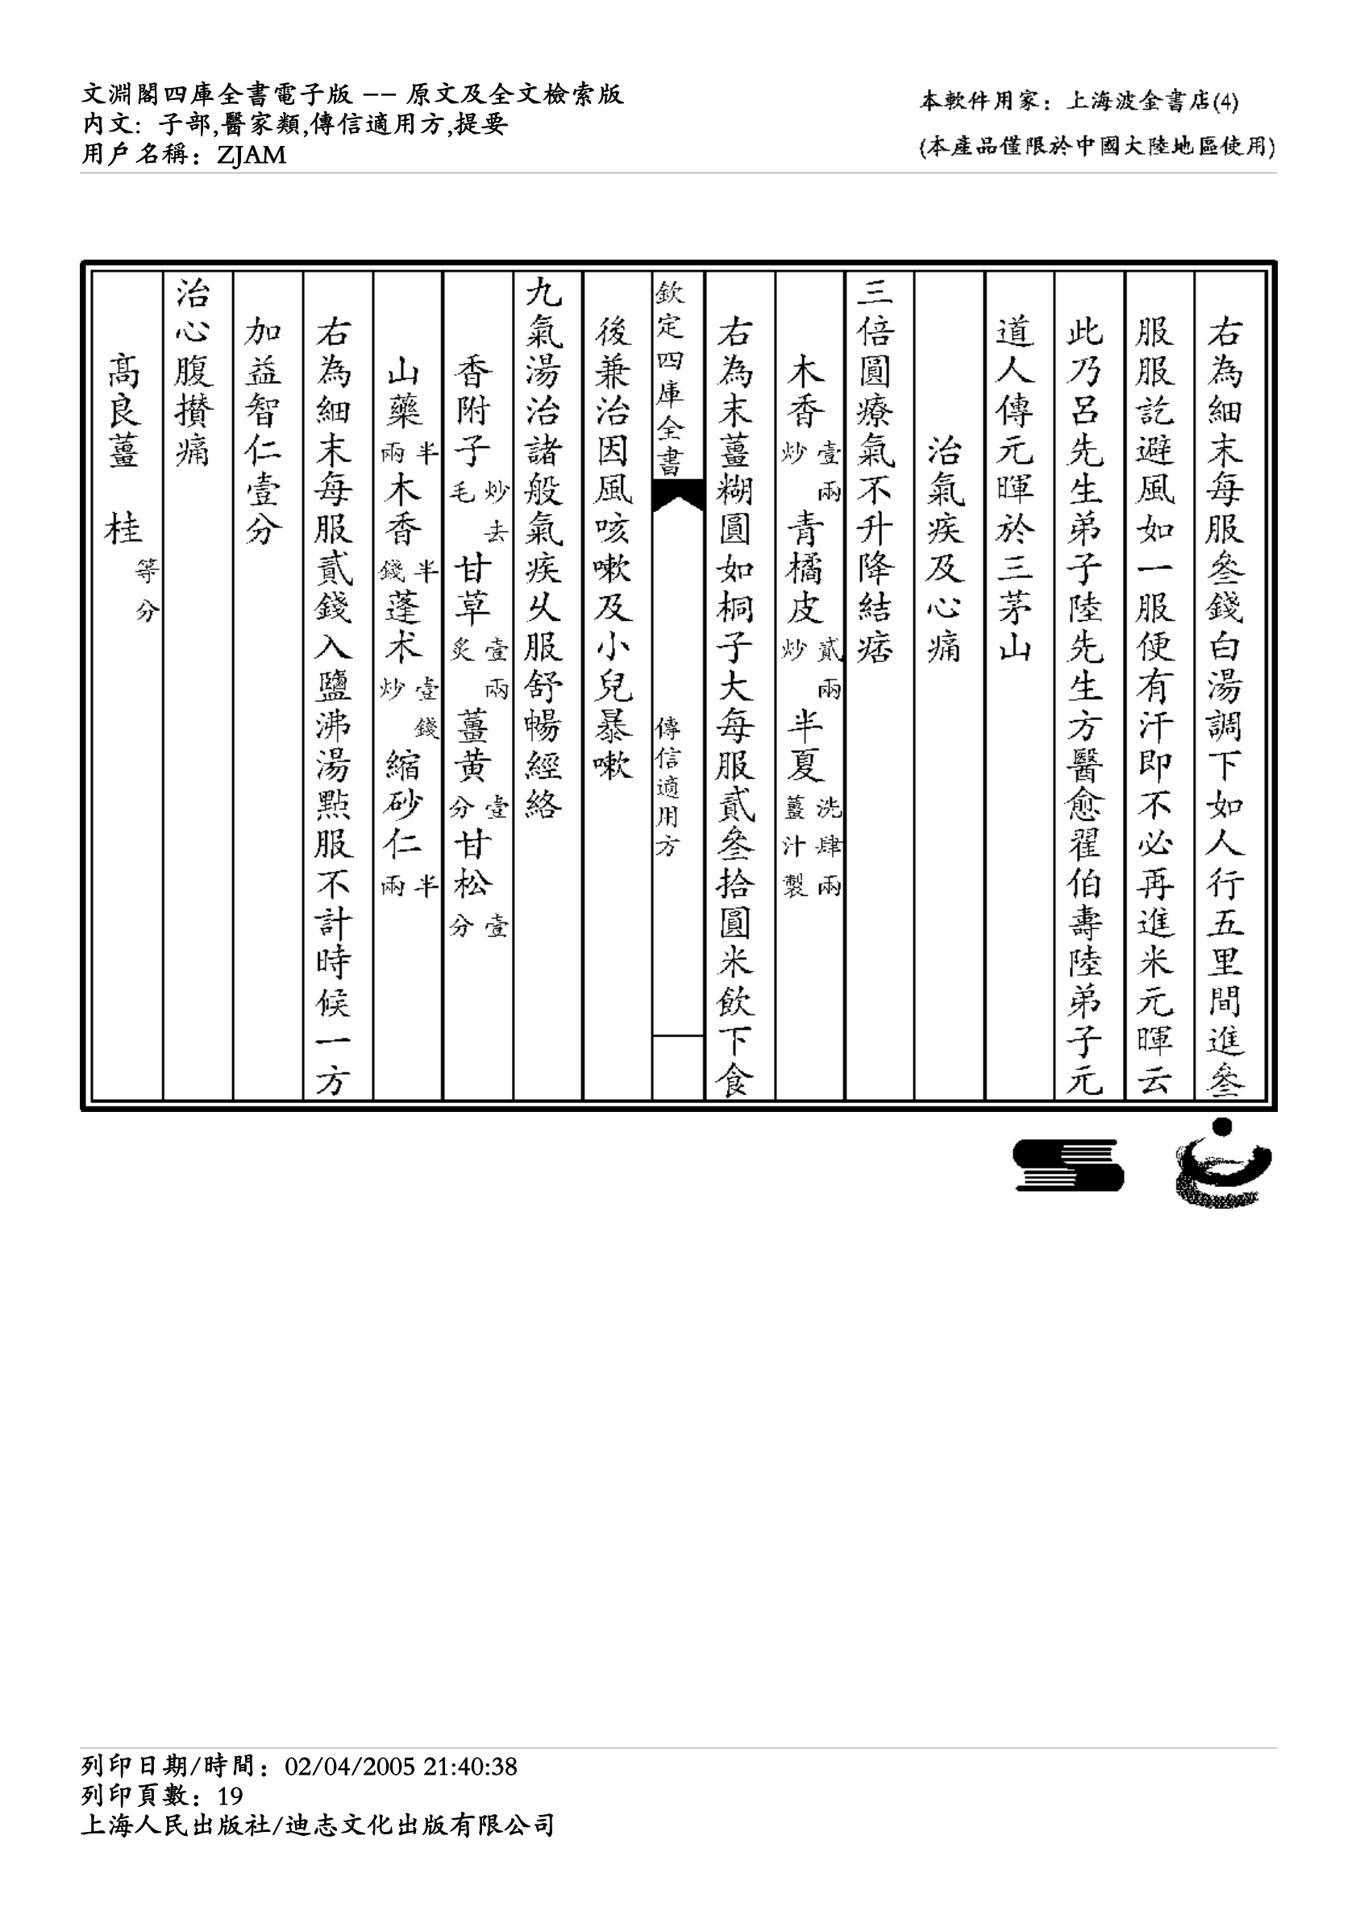 文淵閣四庫全書電子版 -- 原文及全文檢索版
內文: 子部,醫家類,傳信適用方,提要
用戶名稱: ZJAM
本軟件用家: 上海波金書店(4)
(本產品僅限於中國大陸地區使用)
右為細末每服叄錢白湯調下如人行五里間進叄
服服訖避風如一服便有汗即不必再進米元暉云
此乃呂先生弟子陸先生方醫愈翟伯壽陸弟子元
道人傳元暉於三茅山
治氣疾及心痛
三倍圓療氣不升降結痞
木香壹兩炒青橘皮貳兩炒半夏洗肆兩薑汁製
右為末薑糊圓如桐子大每服貳叄拾圓米飲下食
欽定四庫全書 傳信適用方
後兼治因風咳嗽及小兒暴嗽
九氣湯治諸般氣疾乆服舒暢經絡
香附子炒去毛甘草壹兩炙薑黃壹分甘松壹分
山藥半兩木香半錢蓬术壹錢炒縮砂仁半兩
右為細末每服貳錢入鹽沸湯㸃服不計時候一方
加益智仁壹分
治心腹攅痛
髙良薑 桂等分
列印日期/時間: 02/04/2005 21:40:38
列印頁數: 19
上海人民出版社/迪志文化出版有限公司